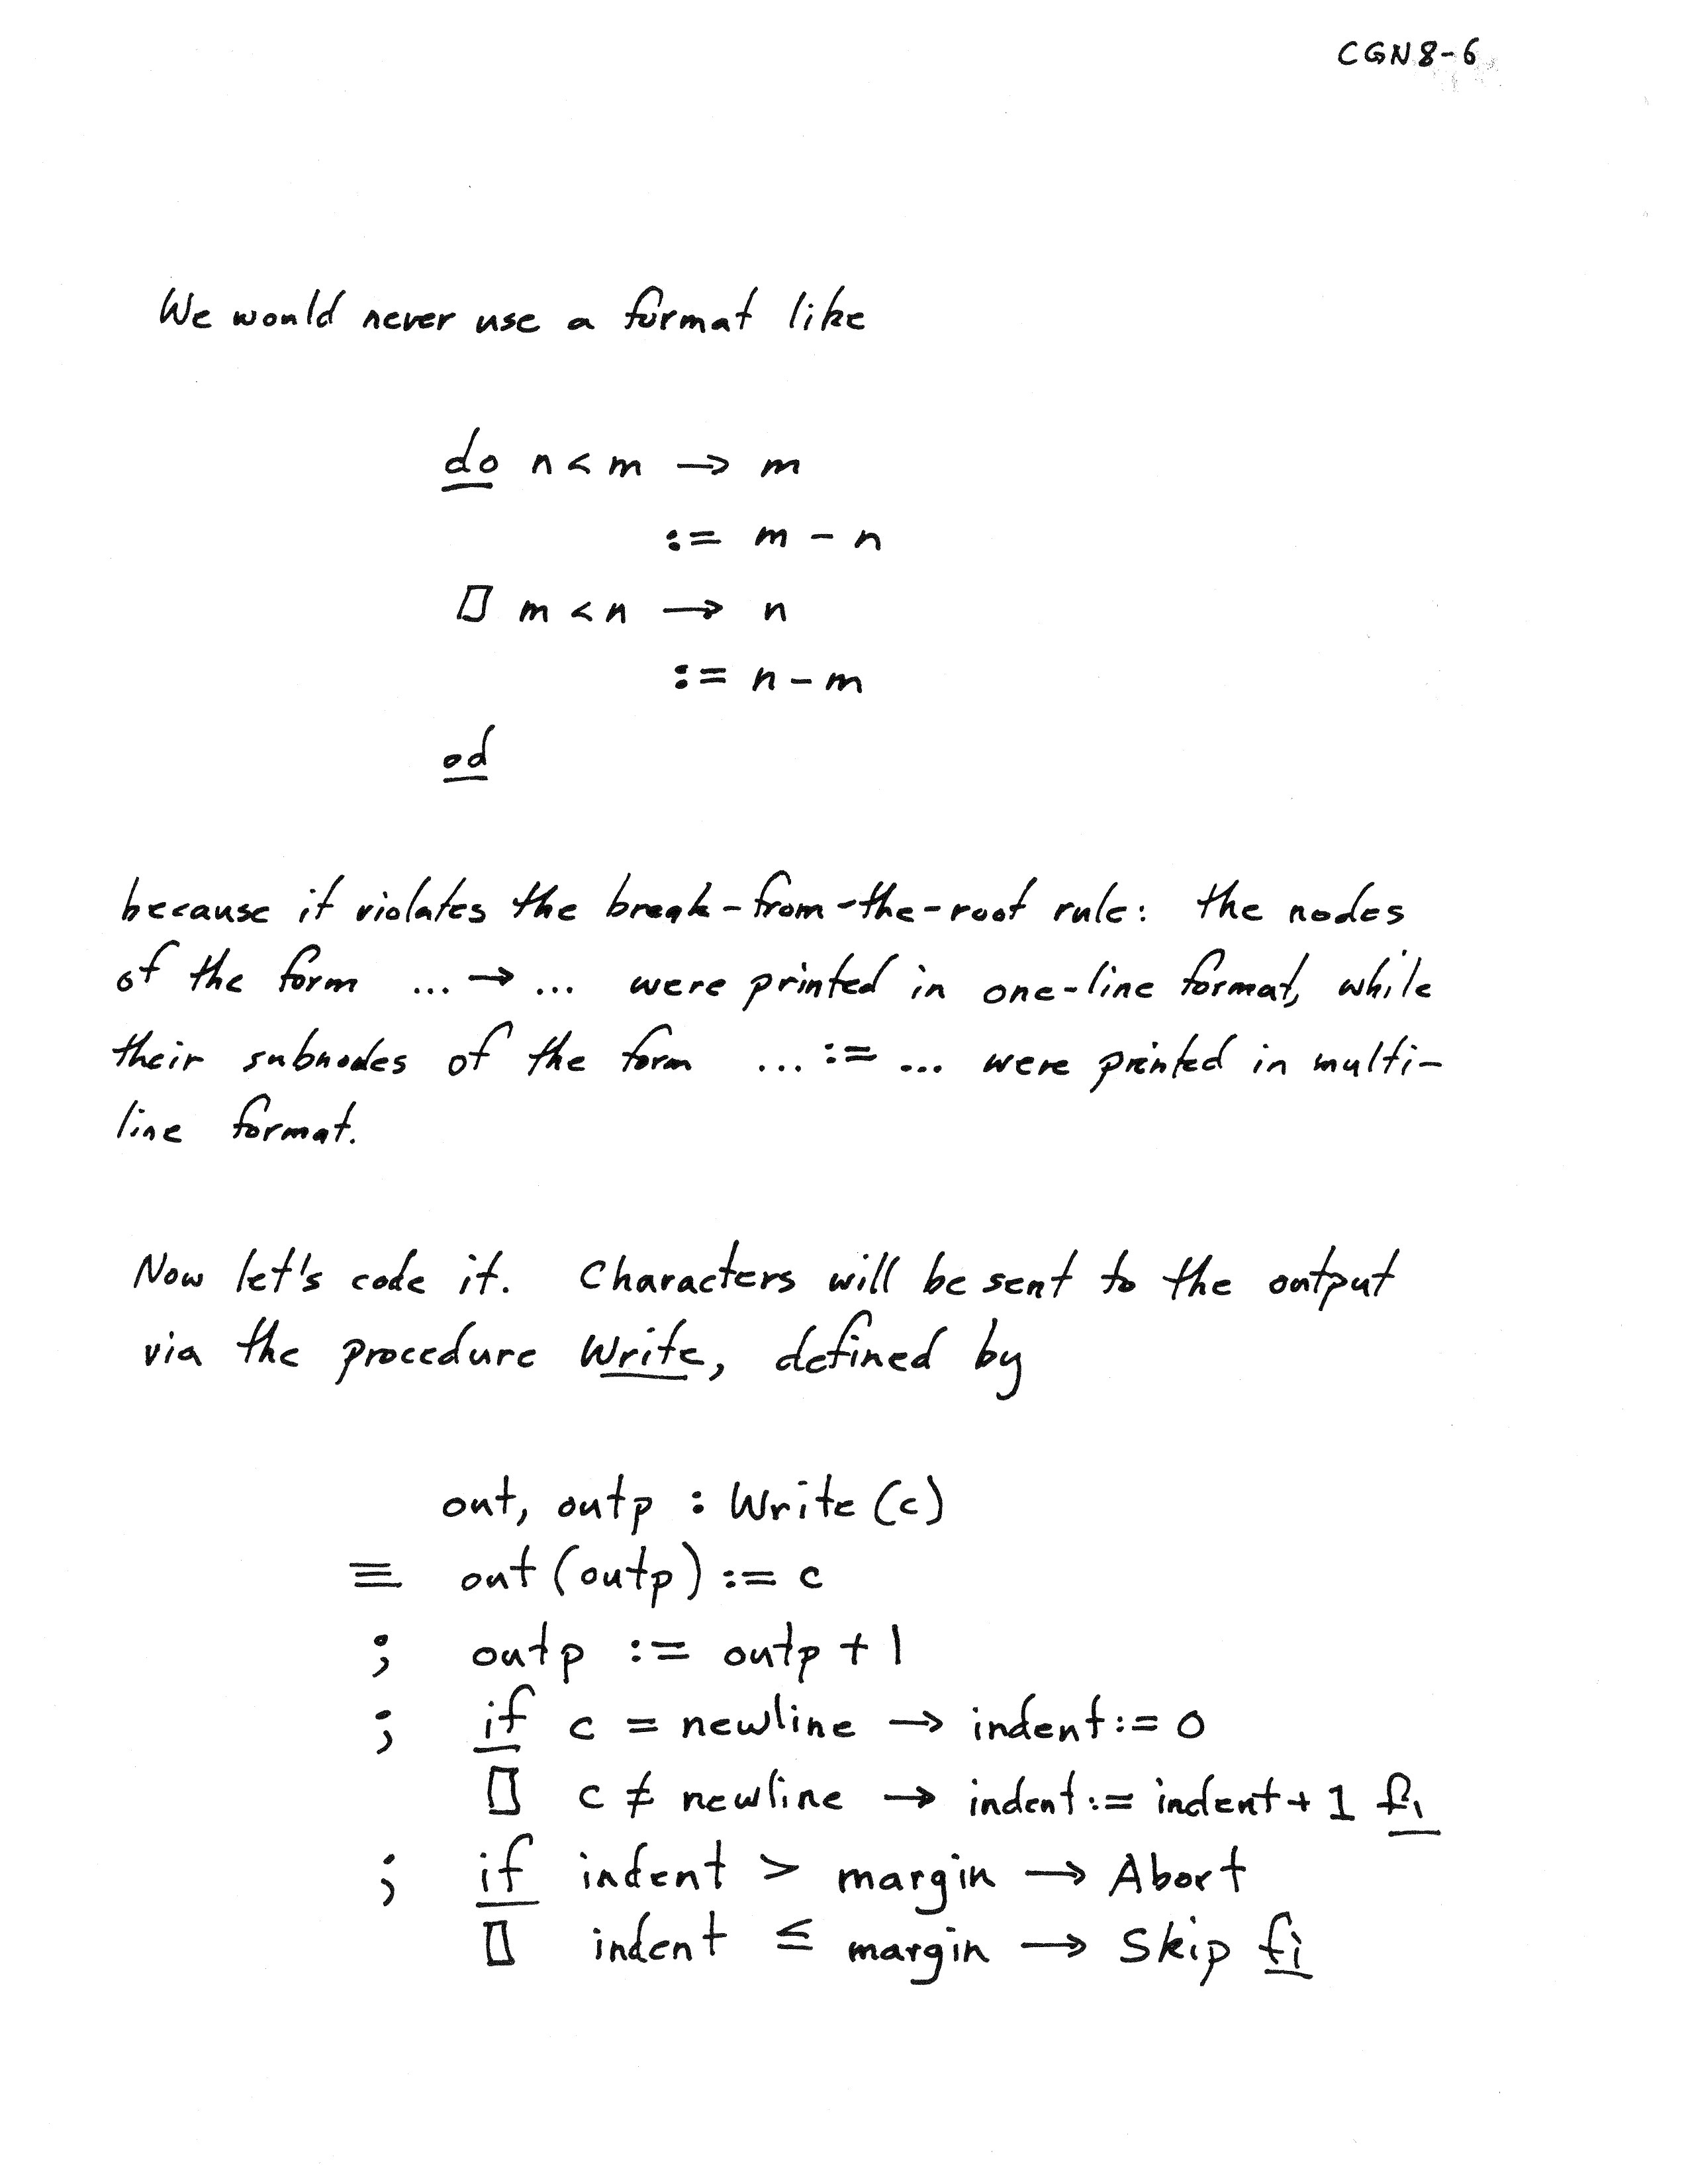 CGN8-6
We would never use a format like
do n < m → m
:= m - n
▯ m < n → n
:= n - m
od
because it violates the break-from-the-root rule: the nodes
of the form ... → ... were printed in one-line format, while
their subnodes of the form ... := ... were printed in multi-
line format.
Now let's code it. Characters will be sent to the output
via the procedure Write, defined by
out, outp : Write (c)
≡ out (outp) := c
; outp := outp + 1
; if c = newline → indent := 0
▯ c ≠ newline → indent := indent + 1 fi
; if indent > margin → Abort
▯ indent ≤ margin → Skip fi